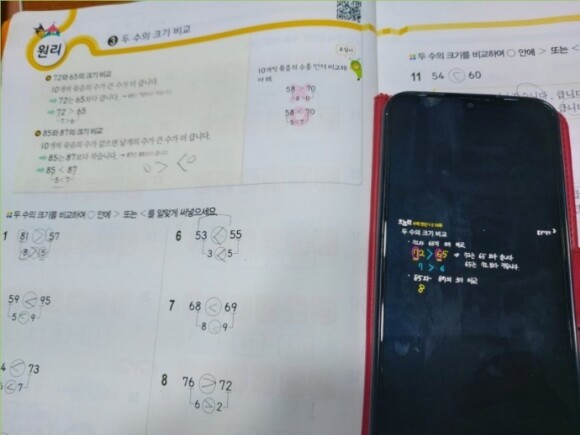 원리
3 두 수의 크기 비교
72와 65의 크기 비교
10개씩 묶음의 수가 큰 수가 더 큽니다.
72는 65보다 큽니다.
72 > 65
7>6
85와 87의 크기 비교
10개씩 묶음의 수가 같으면 낱개의 수가 큰 수가 더 큽니다.
85는 87보다 작습니다.
85 < 87
5<7
10개씩 묶음의 수를 먼저 비교해야 해.
58 > 70
8>0
58 < 70
5<7
두 수의 크기를 비교하여 ○ 안에 > 또는 <를 알맞게 써넣으세요.
1 81 > 57
8 > 5
59 < 95
5 < 9
< 73
< 7
6 53 < 55
3 < 5
7 68 < 69
8 < 9
8 76 > 72
6 > 2
두 수의 크기를 비교하여 ○ 안에 > 또는 <
11 54 < 60
두 수의 크기 비교
72 > 65
7 > 6
8